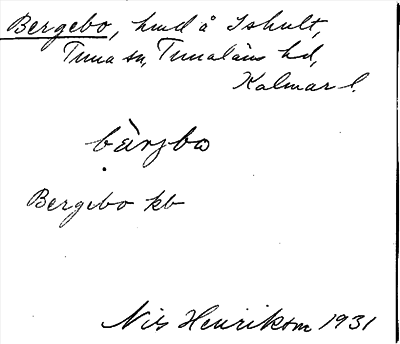 Bergebo, hmd å Ishult,
Tuna sn, Tunaläns hd,
Kalmar l.
bàrjbo
Bergebo kb
Nils Henrikson 1931